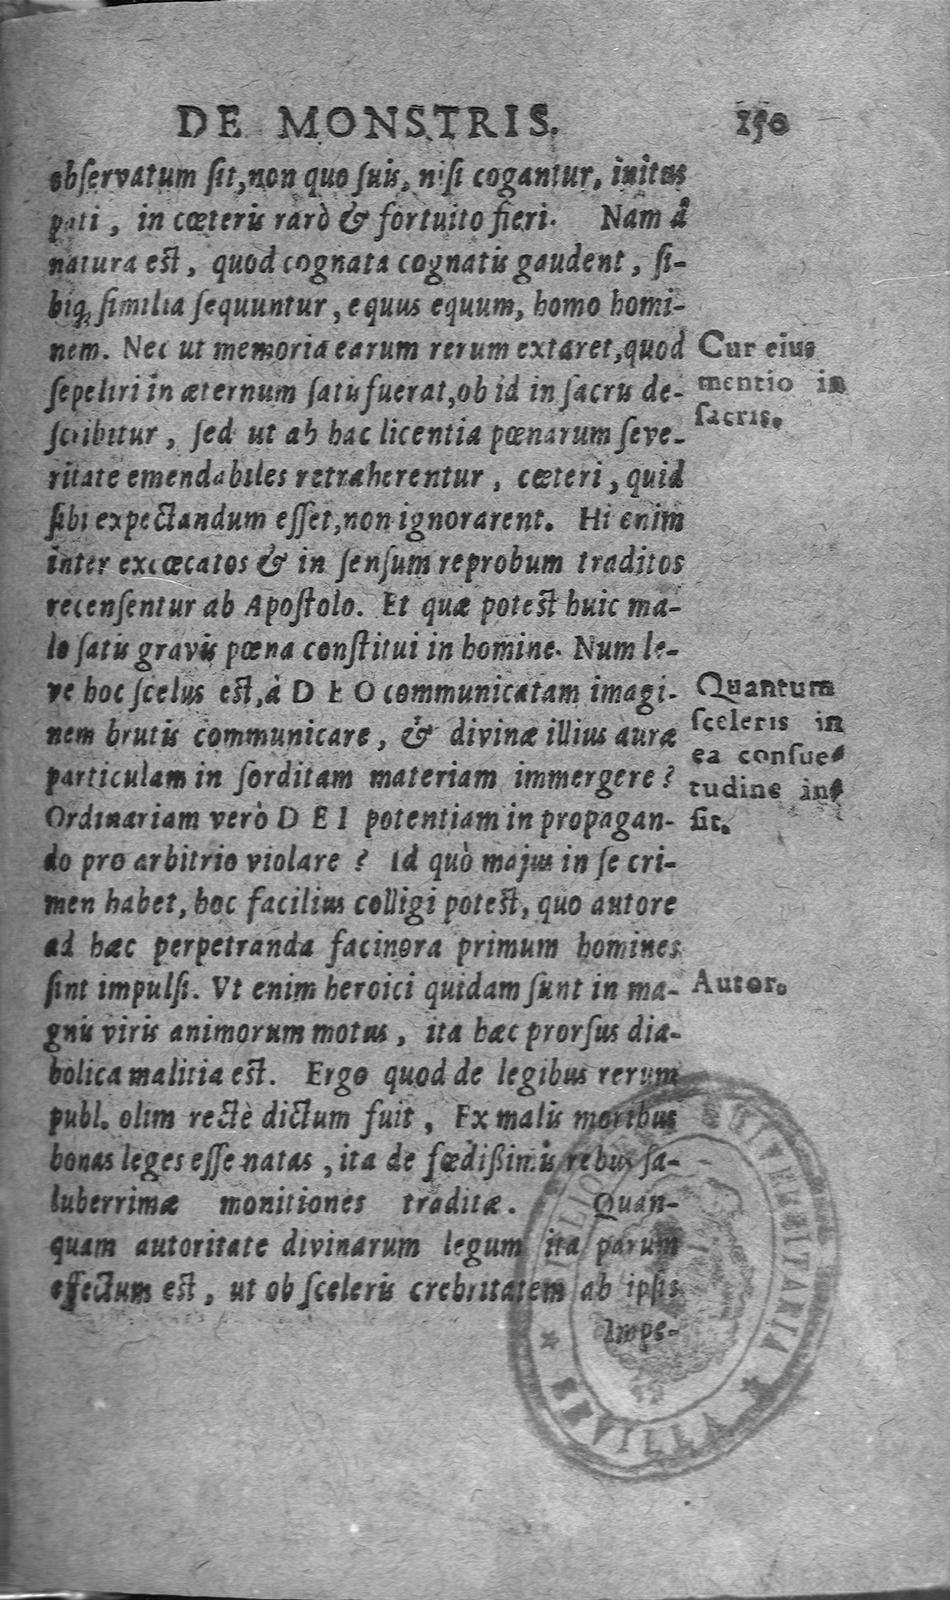 DE MONSTRIS. 150
obſervatum ſit, non quo ſuis, niſi cogantur, initus
pati, in cœteris rarò & fortuito fieri. Nam à
natura eſt, quod cognata cognatis gaudent, ſi-
biq; ſimilia ſequuntur, equus equum, homo homi-
nem. Nec ut memoria earum rerum extaret, quod
Cur eius
ſepeliri in æternum ſatis fuerat, ob id in ſacris de-
mentio in
ſacris.
ſcribitur, ſed ut ab hac licentia pœnarum ſeve-
ritate emendabiles retraherentur, cœteri, quid
ſibi expectandum eſſet, non ignorarent. Hi enim
inter excœcatos & in ſenſum reprobum traditos
recenſentur ab Apoſtolo. Et quæ poteſt huic ma-
lo ſatis gravis pœna conſtitui in homine. Num le-
ve hoc ſcelus eſt, à DEO communicatam imagi-
Quantum
nem brutis communicare, & divinæ illius auræ
ſceleris in
ea conſue-
particulam in ſorditam materiam immergere?
tudine in-
Ordinariam verò DEI potentiam in propagan-
ſit.
do pro arbitrio violare? Id quò majus in ſe cri-
men habet, hoc facilius colligi poteſt, quo autore
ad hæc perpetranda facinora primum homines
ſint impulſi. Vt enim heroici quidam ſunt in ma-
Autor.
gnis viris animorum motus, ita hæc prorſus dia-
bolica malitia eſt. Ergo quod de legibus rerum
publ. olim rectè dictum fuit, Ex malis moribus
bonas leges eſſe natas, ita de fœdißimis rebus ſa-
luberrimæ monitiones traditæ. Quan-
quam autoritate divinarum legum ita parum
effectum eſt, ut ob ſceleris crebritatem ab ipſis
Impe-